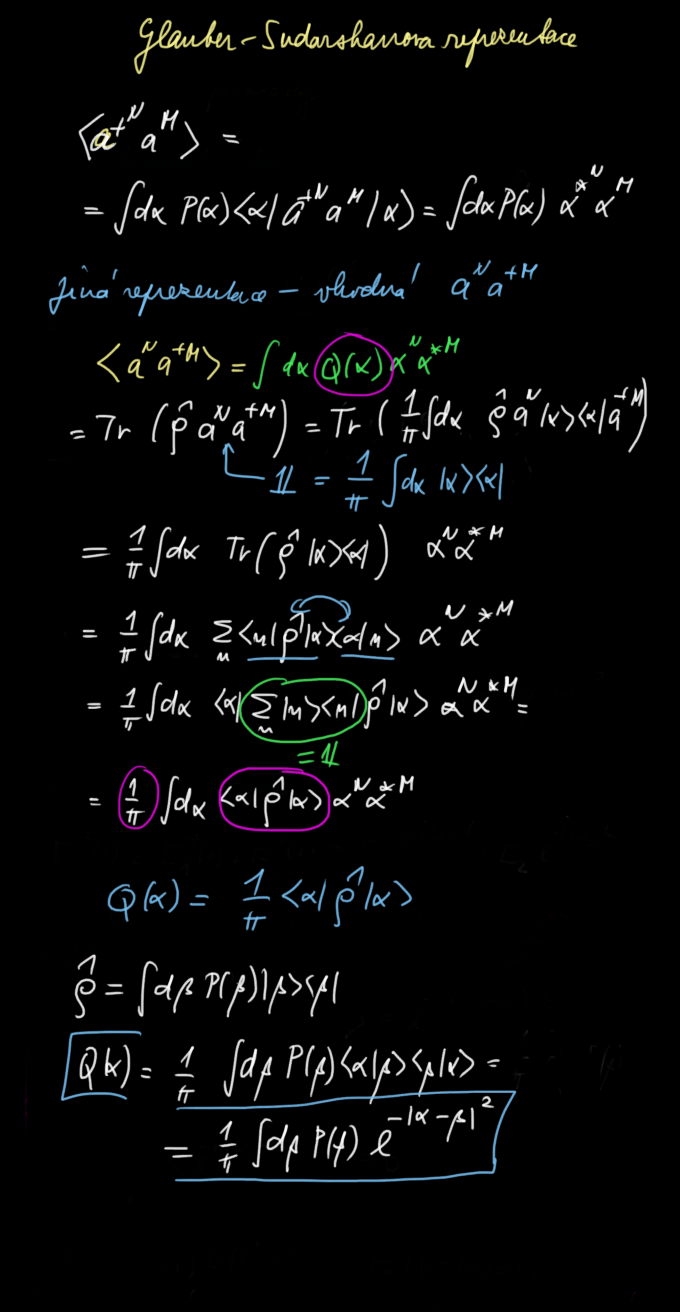 Glauber-Sudarshanova reprezentace
⟨a⁺ᴺ aᴹ⟩ =
= ∫dα P(α)⟨α| â⁺ᴺ aᴹ |α⟩ = ∫dα P(α) α*ᴺ αᴹ
Jiná reprezentace – vhodná aᴺ a⁺ᴹ
⟨aᴺ a⁺ᴹ⟩ = ∫ dα Q(α) αᴺ α*ᴹ
= Tr (ρ̂ aᴺ a⁺ᴹ) = Tr (1/π ∫dα ρ̂ âᴺ |α⟩⟨α| â⁺ᴹ)
𝟙 = 1/π ∫dα |α⟩⟨α|
= 1/π ∫dα Tr(ρ̂ |α⟩⟨α|) αᴺ α*ᴹ
= 1/π ∫dα Σₙ ⟨n|ρ̂|α⟩⟨α|n⟩ αᴺ α*ᴹ
= 1/π ∫dα ⟨α| Σₙ |n⟩⟨n| ρ̂ |α⟩ αᴺ α*ᴹ =
= 𝟙
= 1/π ∫dα ⟨α|ρ̂|α⟩ αᴺ α*ᴹ
Q(α) = 1/π ⟨α|ρ̂|α⟩
ρ̂ = ∫dβ P(β)|β⟩⟨β|
Q(α) = 1/π ∫dβ P(β)⟨α|β⟩⟨β|α⟩ =
= 1/π ∫dβ P(β) e^(-|α-β|²)